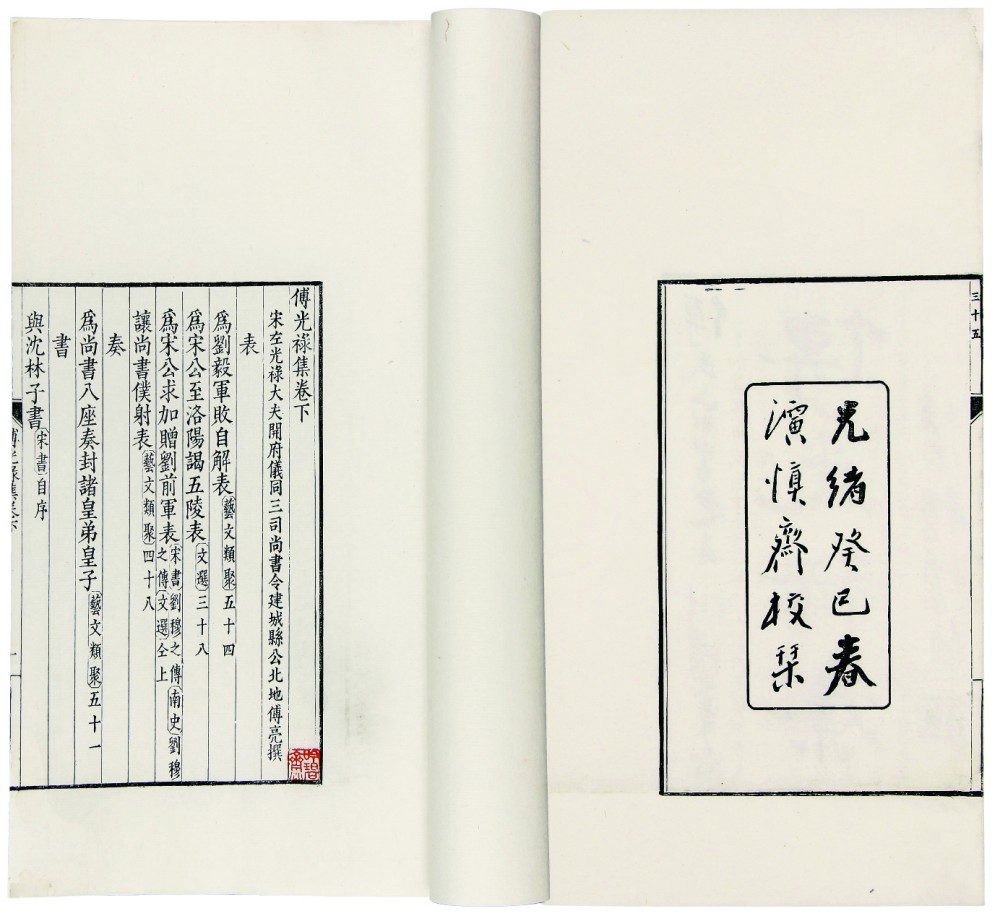 三十五
光緒癸巳春
演慎齋校栞
傅光祿集卷下
宋左光祿大夫開府儀同三司尚書令建城縣公北地傅亮撰
表
爲劉毅軍敗自解表藝文類聚五十四
爲宋公至洛陽謁五陵表文選三十八
爲宋公求加贈劉前軍表宋書劉穆之傳南史劉穆之傳文選仝上
讓尚書僕射表藝文類聚四十八
奏
爲尚書八座奏封諸皇弟皇子藝文類聚五十一
書
與沈林子書宋書自序